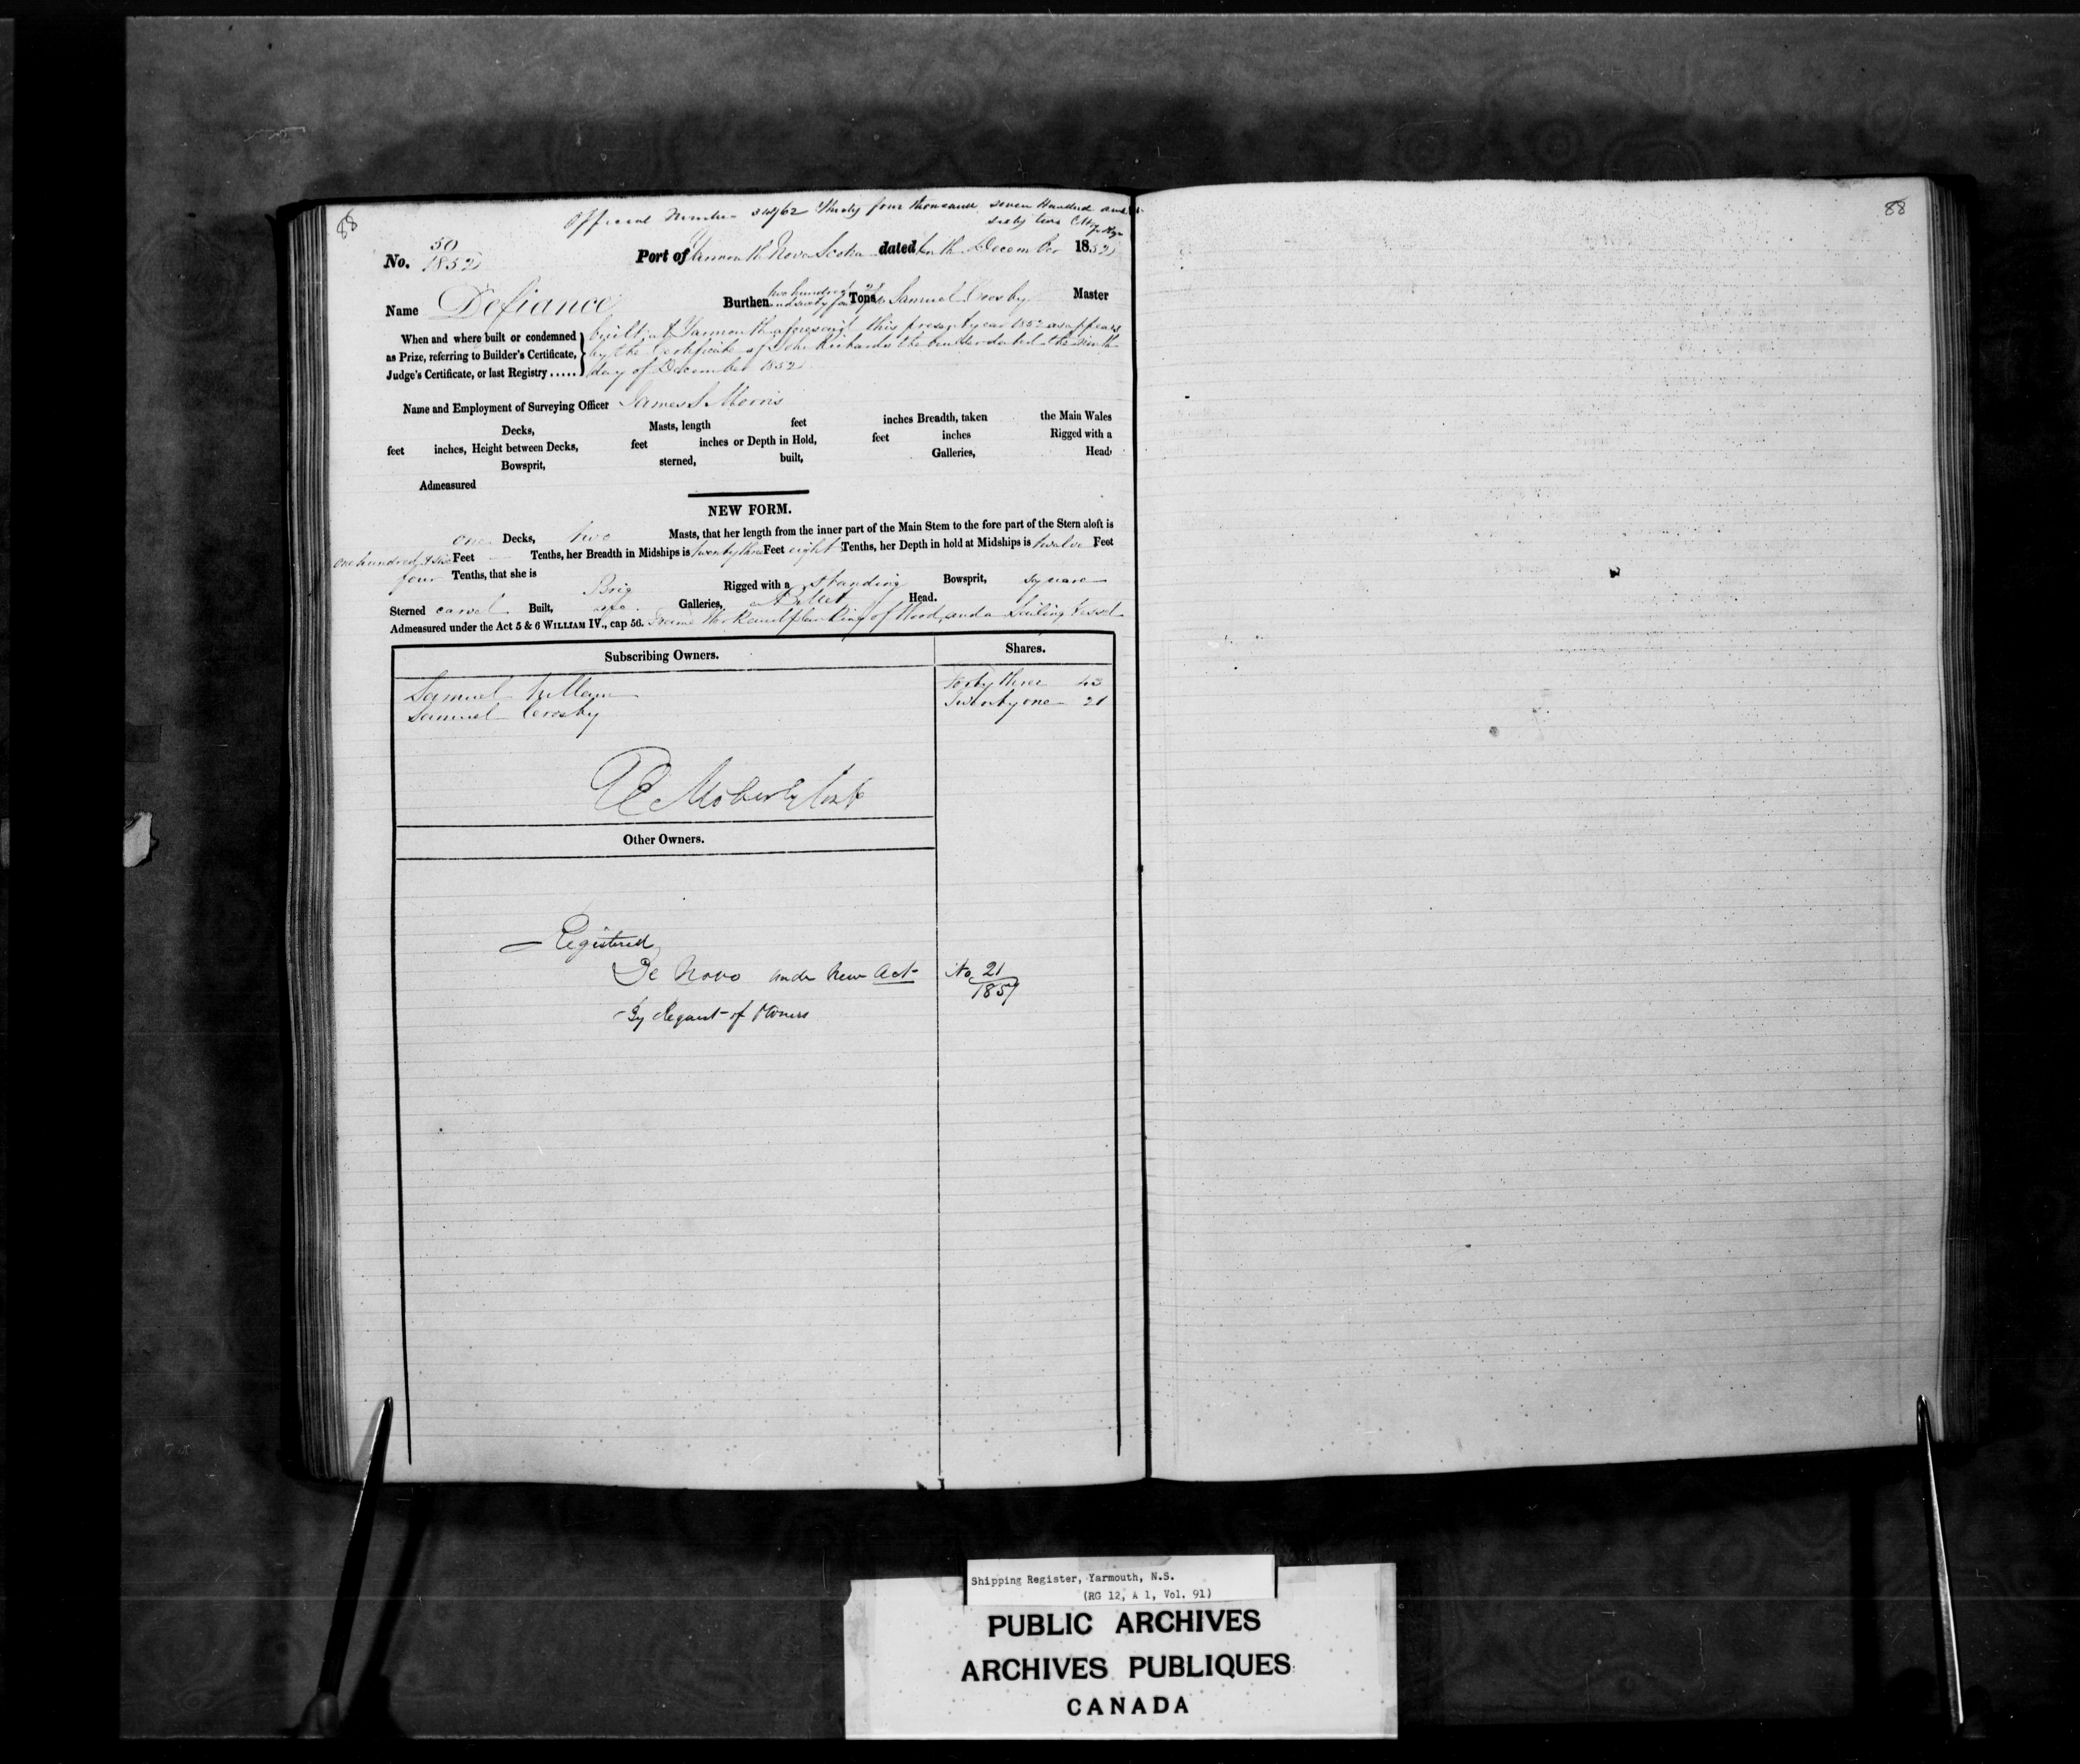 88
Official Number 34762 Thirty four thousand seven Hundred and
sixty two
No. 50
1852
Port of Yarmouth Nova Scotia dated tenth December 1852
Name Defiance
Burthen two hundred and sixty four Tons Samuel Crosby Master
When and where built or condemned
as Prize, referring to Builder's Certificate,
Judge's Certificate, or last Registry .....
built at Yarmouth aforesaid this present year 1852 as appears
by the Certificate of John Richards the builder dated the ninth
day of December 1852
Name and Employment of Surveying Officer James S Morris
Decks, Masts, length feet inches Breadth, taken the Main Wales
feet inches, Height between Decks, feet inches or Depth in Hold, feet inches Rigged with a
Bowsprit, sterned, built, Galleries, Head
Admeasured
NEW FORM.
one Decks, two Masts, that her length from the inner part of the Main Stem to the fore part of the Stern aloft is
one hundred & six Feet Tenths, her Breadth in Midships is twenty three Feet eight Tenths, her Depth in hold at Midships is twelve Feet
four Tenths, that she is Brig Rigged with a standing Bowsprit, square
Sterned carvel Built, no Galleries, Billet Head.
Admeasured under the Act 5 & 6 WILLIAM IV., cap 56. Frame Work and planking of Wood, and a Sailing Vessel
Subscribing Owners. Shares.
Samuel Forty three 43
Samuel Crosby Twenty one 21
Other Owners.
Registered
De Novo under New Act No. 21
1857
By Request of Owners
88
Shipping Register, Yarmouth, N.S.
(RG 12, A 1, Vol. 91)
PUBLIC ARCHIVES
ARCHIVES PUBLIQUES
CANADA